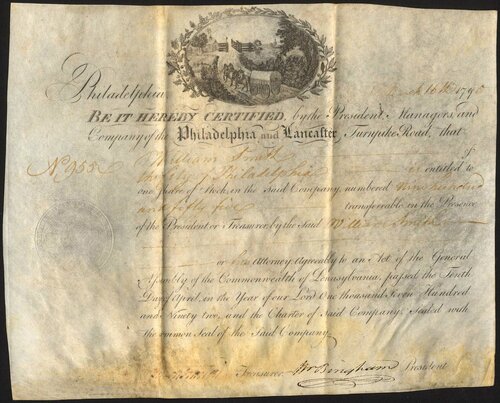 Philadelphia March 16th 1795
BE IT HEREBY CERTIFIED, by the President, Managers and
Company of the Philadelphia and Lancaster Turnpike Road, that
No. 955 William Smith of
the City of Philadelphia is entitled to
one Share of Stock, in the Said Company, numbered Nine hundred
and fifty five transferrable in the Presence
of the President or Treasurer by the Said William Smith
or his Attorney. Agreeably to an Act of the General
Assembly of the Commonwealth of Pennsylvania, passed the Ninth
Day of April, in the Year of our Lord One thousand Seven Hundred
and Ninety two, and the Charter of Said Company, Sealed with
the common Seal of the Said Company.
Treasurer. Wm Bingham President